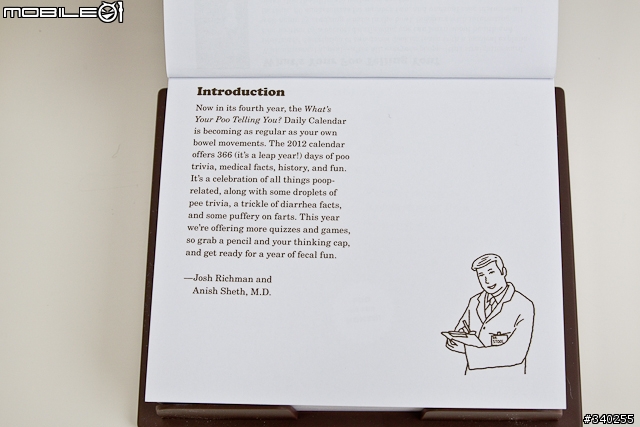 MOBILE01
Introduction
Now in its fourth year, the What's
Your Poo Telling You? Daily Calendar
is becoming as regular as your own
bowel movements. The 2012 calendar
offers 366 (it's a leap year!) days of poo
trivia, medical facts, history, and fun.
It's a celebration of all things poop-
related, along with some droplets of
pee trivia, a trickle of diarrhea facts,
and some puffery on farts. This year
we're offering more quizzes and games,
so grab a pencil and your thinking cap,
and get ready for a year of fecal fun.
—Josh Richman and
Anish Sheth, M.D.
STOOL
#340255